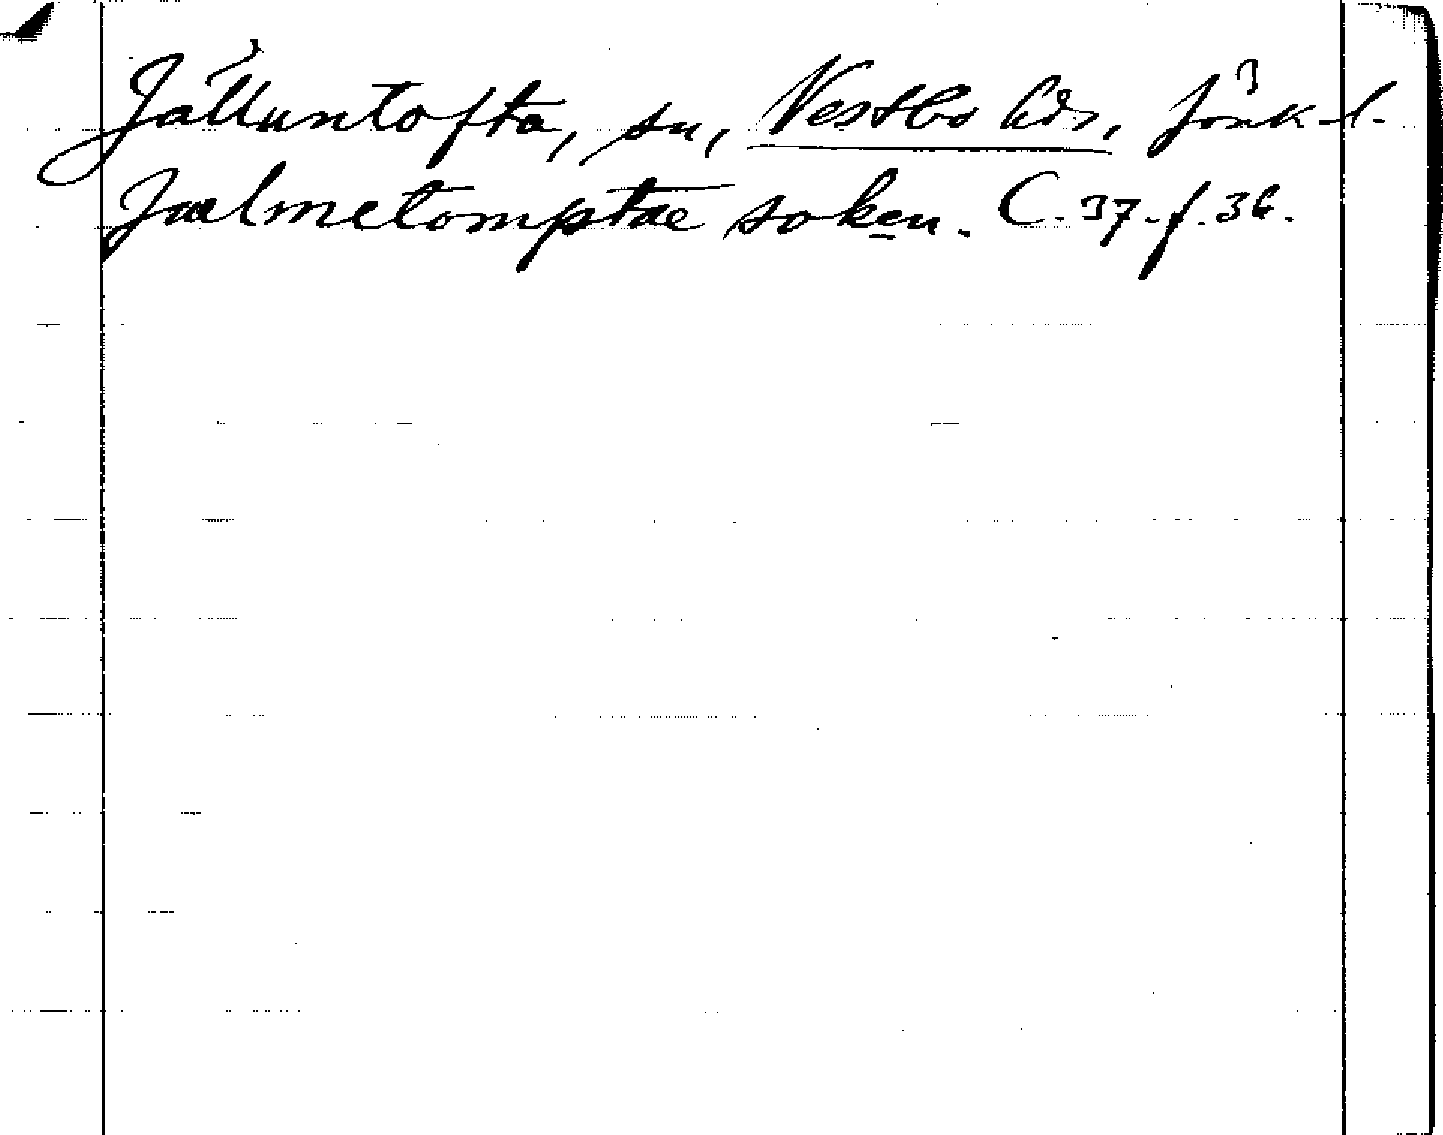 Jälluntofta, sn, Vestbo hds, Jönk. l.
Jælmetomptæ soken. C. 37. f. 36.